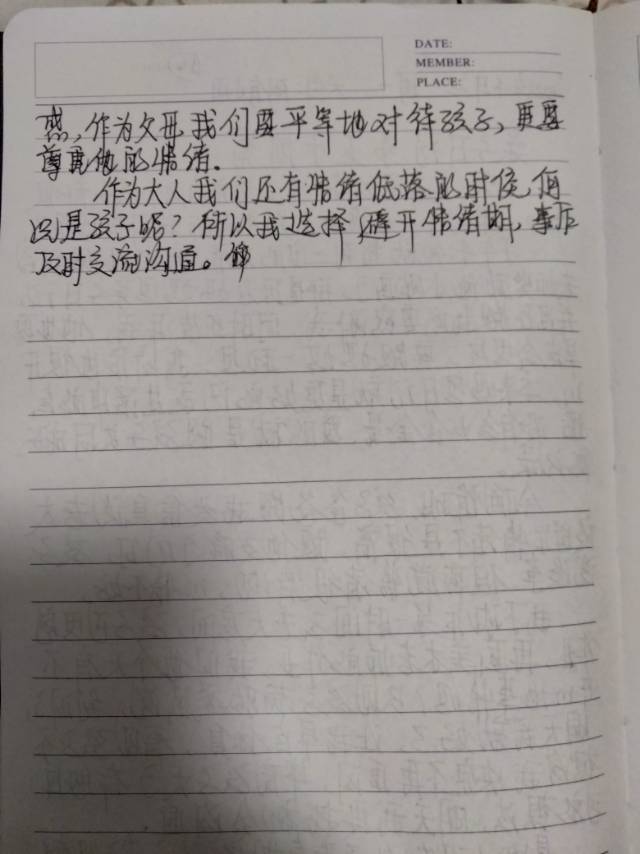 DATE:
MEMBER:
PLACE:
感，作为父母我们要平等地对待孩子，更要
尊重他的情绪.
作为大人我们还有情绪低落的时候，何
况是孩子呢？所以我选择避开情绪期，事后
及时交流沟通。